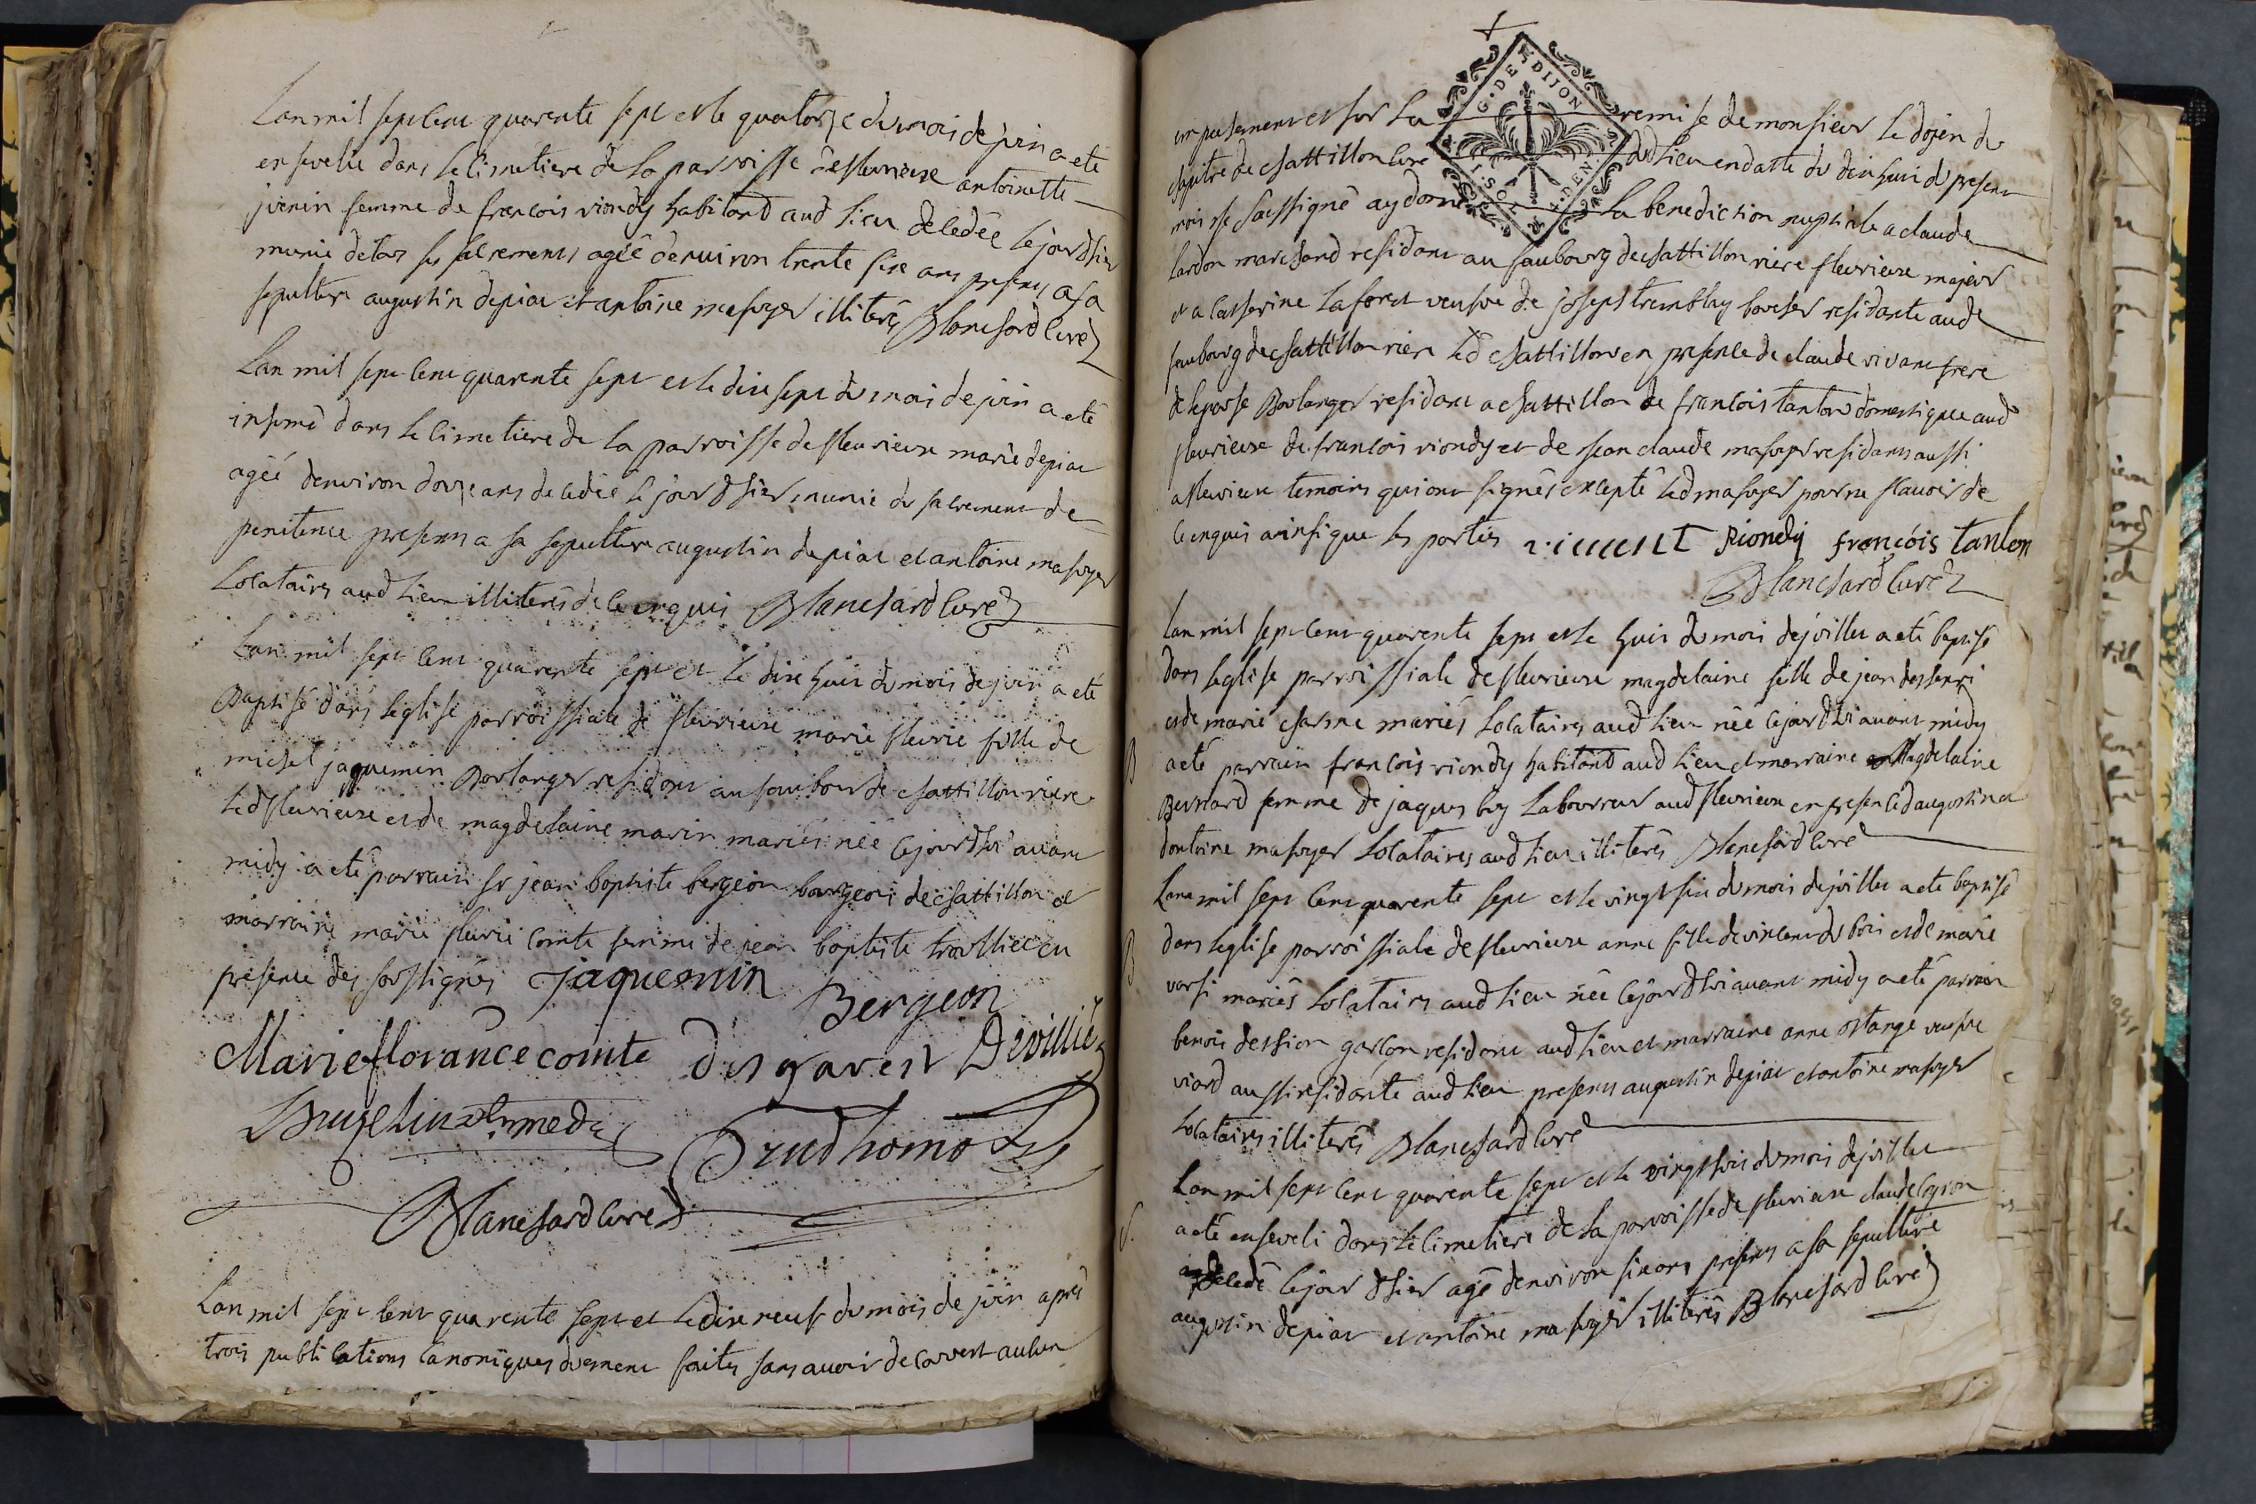 Lan mil sept cent quarente sept et le quatorze du mois de juin a eté
ensevelie dans le cimetiere de la parroisse de fleurieux antoinette
juenin femme de francois riondy habitand aud lieu decedée le jour dhier
munie de tous ses sacremens agée denviron trente six ans presens a sa
sepulture augustin depiat et antoine masuyer illiterés Blanchard curé
Lan mil sept cent quarente sept et le dix sept du mois de juin a eté
inhumé dans le cimetiere de la parroisse de fleurieux marie depiat
agéé denviron douze ans decedée le jour dhier munie du sacrement de
penitence presens a sa sepulture augustin depiat et antoine masuyer
Locataires aud lieu illiterés de ce enquis Blanchard curé
Lan mil sept cent quarente sept et le dix huit du mois de juin a eté
Baptisé dans leglise parroissiale de fleurieux marie fleurie fille de
michel jaquemin Boulanger residant au faubour de chattillon riere
led fleurieux et de magdelaine marin mariés née ce jourdhui avant
midy a eté parrain sr jean baptiste bergeon bourgeois de chattillon et
marraine marie fleurie comte femme de jean baptiste trouillier en
presence des soussignés jaquemin
Bergeon
Marie florance comte disgarest Devillié
Prudhomo
Blanchard curé
Lan mil sept cent quarente sept et le dix neuf du mois de juin après
trois publications canoniques duement faites sans avoir decouvert aucun
empechement et sur la remise de monsieur le doyen du
chapitre de chattillon curé dud lieu en datte du dix huit du present
mois je soussigné ay donné la benediction nuptiale a claude
lardon marchand residant au faubourg de chattillon riere fleurieux majeur
et a catherine laforet veufve de joseph tremblay boucher residante aud
faubourg de chattillon riere led chattillon en presence de claude vivant frere
de lepouse Boulanger residant a chattillon de francois tanton domestique aud
fleurieux de francois riondy et de jean claude masuyer residants aussi
a fleurieux temoins qui ont signés excepté led masuyer pour ne scavoir de
ce enquis ainsi que les parties vivent Riondy francois tanton
Blanchard curé
Lan mil sept cent quarente sept et le huit du mois de juillet a eté baptisé
dans leglise parroissiale de fleurieux magdelaine fille de jean
et de marie charme mariés Locataires aud lieu née ce jourdhui avant midy
a eté parrain francois riondy habitand aud lieu et marraine Magdelaine
Bernard femme de jaques buy Laboureur aud fleurieux en presence daugustin et
dantoine masuyer Locataires aud lieu illiterés Blanchard curé
Lan mil sept cent quarente sept et le vingt six du mois de juillet a eté baptisé
dans leglise parroissiale de fleurieux anne fille de vincent du bois et de marie
varsi mariés Locataires aud lieu née ce jourdhui avant midy a eté parrain
benoit deschion garcon residant aud lieu et marraine anne ostange veufve
viard aussi residante aud lieu presens augustin depiat et antoine masuyer
Locataires illiterés Blanchard curé
Lan mil sept cent quarente sept et le vingt huit du mois de juillet
a eté enseveli dans le cimetiere de la parroisse de fleurieux claude
decedé le jour dhier agé denviron six ans presens a sa sepulture
augustin depiat et antoine masuyer illiterés Blanchard curé
G. DE DIJON